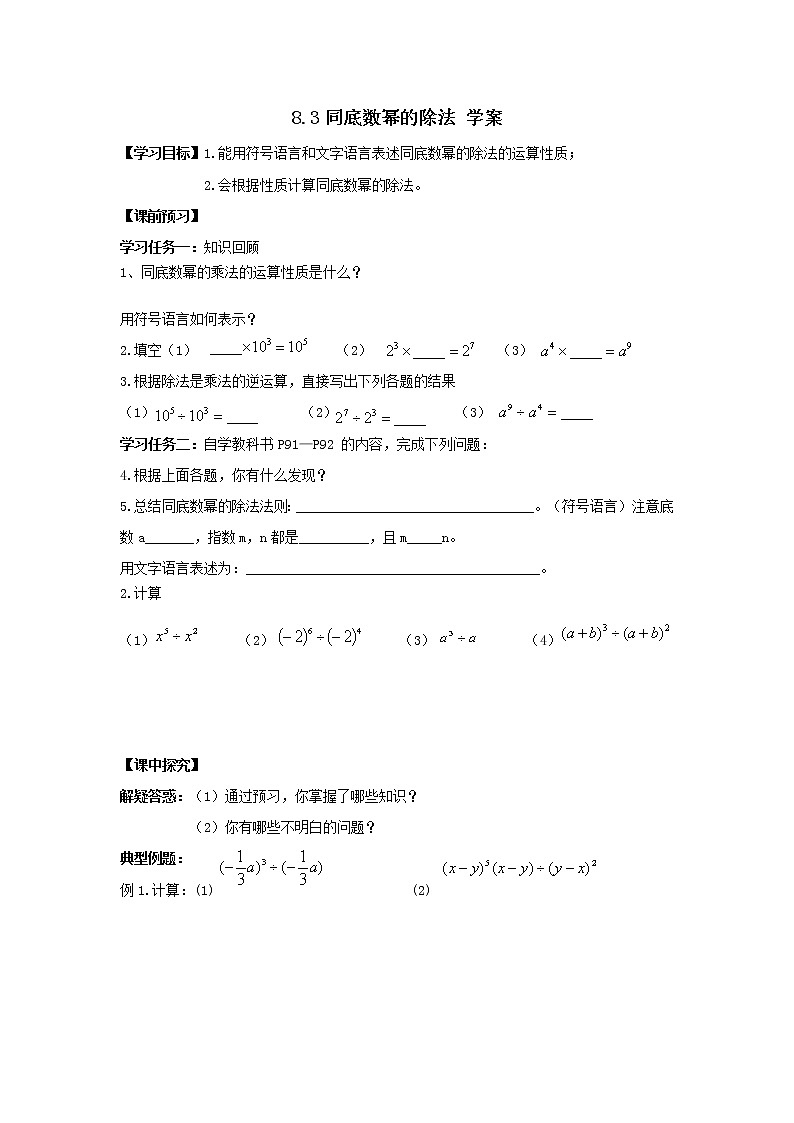 8.3同底数幂的除法 学案
【学习目标】1.能用符号语言和文字语言表述同底数幂的除法的运算性质；
2.会根据性质计算同底数幂的除法。
【课前预习】
学习任务一：知识回顾
1、同底数幂的乘法的运算性质是什么？
用符号语言如何表示？
2.填空（1） ____×10³=10⁵ （2） 2³×____=2⁷ （3） a⁴×____=a⁹
3.根据除法是乘法的逆运算，直接写出下列各题的结果
（1）10⁵÷10³=____ （2）2⁷÷2³=____ （3） a⁹÷a⁴=____
学习任务二：自学教科书P91—P92 的内容，完成下列问题：
4.根据上面各题，你有什么发现？
5.总结同底数幂的除法法则：__________________________________。（符号语言）注意底
数a_______，指数m，n都是__________，且m_____n。
用文字语言表述为：__________________________________________。
2.计算
（1）x⁵÷x² （2）(−2)⁶÷(−2)⁴ （3） a³÷a （4）(a+b)³÷(a+b)²
【课中探究】
解疑答惑：（1）通过预习，你掌握了哪些知识？
（2）你有哪些不明白的问题？
典型例题：
例1.计算：(1) (−1/3a)³÷(−1/3a) (2) (x−y)⁵(x−y)÷(y−x)²